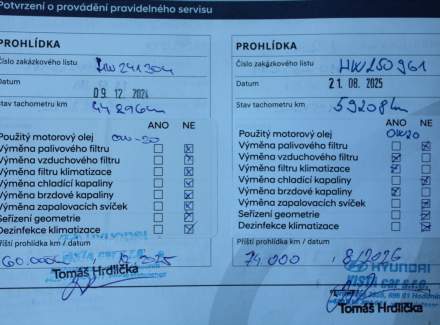 Potvrzení o provádění pravidelného servisu
PROHLÍDKA
Číslo zakázkového listu HW241304
Datum 09. 12. 2024
Stav tachometru km 44296km
ANO NE
Použitý motorový olej 0W-20
Výměna palivového filtru
Výměna vzduchového filtru
Výměna filtru klimatizace
Výměna chladící kapaliny
Výměna brzdové kapaliny
Výměna zapalovacích svíček
Seřízení geometrie
Dezinfekce klimatizace
Příští prohlídka km / datum
60.000
Tomáš Hrdlička
PROHLÍDKA
Číslo zakázkového listu HW250961
Datum 21. 08. 2025
Stav tachometru km 59208km
ANO NE
Použitý motorový olej 0W20
Výměna palivového filtru
Výměna vzduchového filtru
Výměna filtru klimatizace
Výměna chladící kapaliny
Výměna brzdové kapaliny
Výměna zapalovacích svíček
Seřízení geometrie
Dezinfekce klimatizace
Příští prohlídka km / datum
74.000 8/2026
HYUNDAI
car s.r.o.
Tomáš Hrdlička